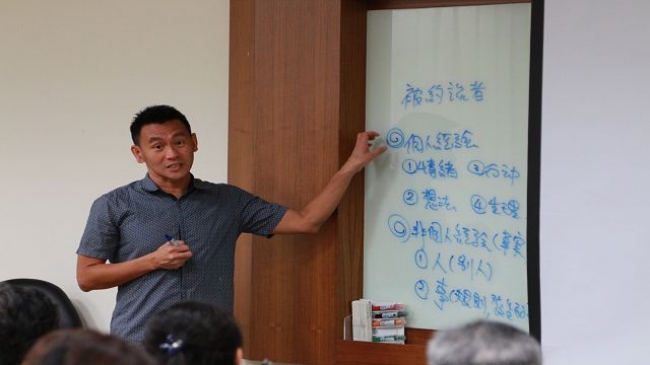 被約談者
個人經驗
①情緒 ③行动
② 想法 ④生理
非個人經驗(事實
① 人(別人)
② 事(規則,